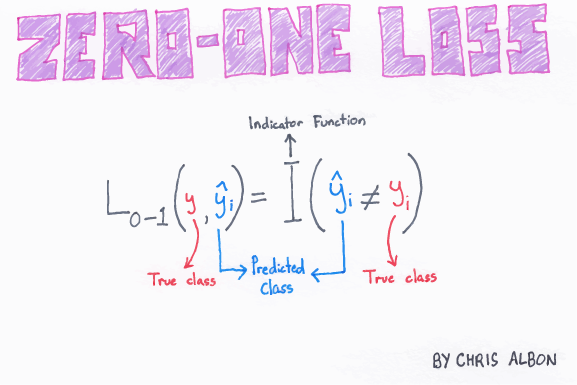 ZERO-ONE LOSS
Indicator Function
L0-1(y, ŷi) = I(ŷi ≠ yi)
True class
Predicted
Class
True class
BY CHRIS ALBON